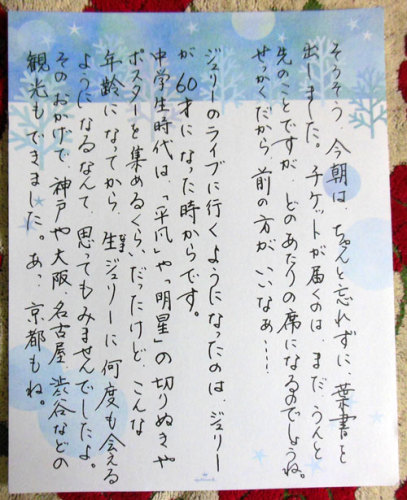 そうそう 今朝は、ちゃんと忘れずに、葉書と
出しました。チケットが届くのは まだ うんと
先のことですが、どのあたりの席になるのでしょうね。
せっかくだから、前の方が、いいなぁ…。
ジュリーのライブに行くようになったのは、ジュリー
が 60才になった時からです。
中学生時代は、「平凡」や「明星」の切りぬきや
ポスターを集めるくらいだったけど、こんな
年齢になってから、生ジュリーに何度も会える
ようになるなんて、思ってもみませんでしたよ。
そのおかげで、神戸や大阪、名古屋、渋谷などの
観光もできました。あっ、京都もね。